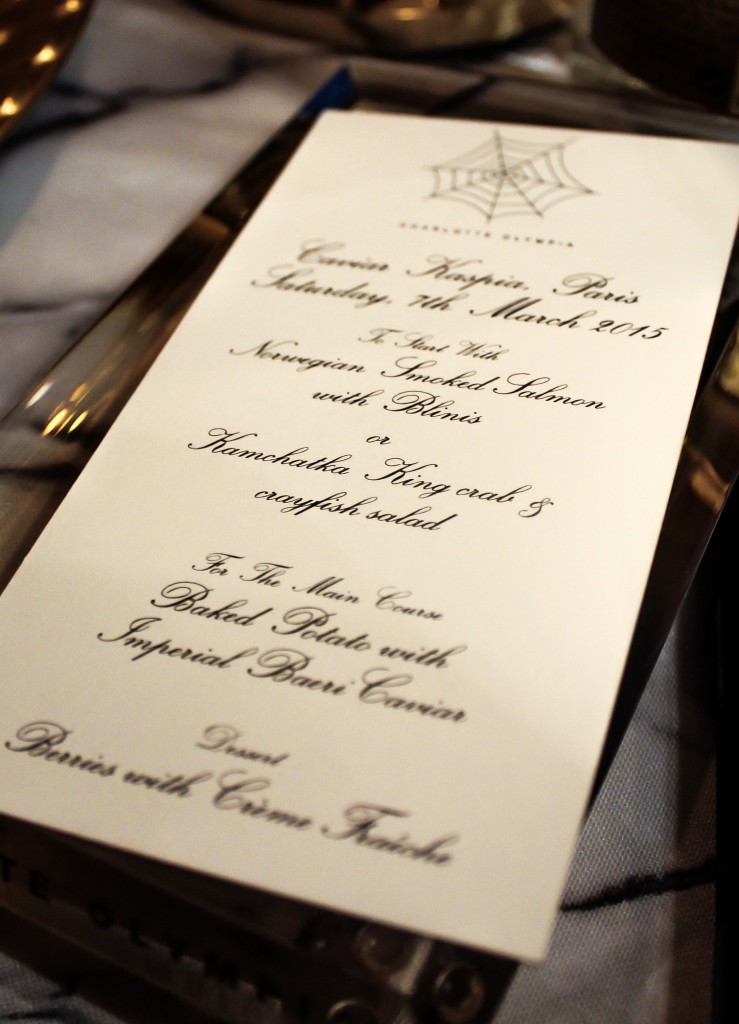 CHARLOTTE OLYMPIA
Caviar Kaspia, Paris
Saturday, 7th March 2015
To Start With
Norwegian Smoked Salmon
with Blinis
or
Kamchatka King crab &
crayfish salad
For The Main Course
Baked Potato with
Imperial Baeri Caviar
Dessert
Berries with Crème Fraîche
TE OLYMPI